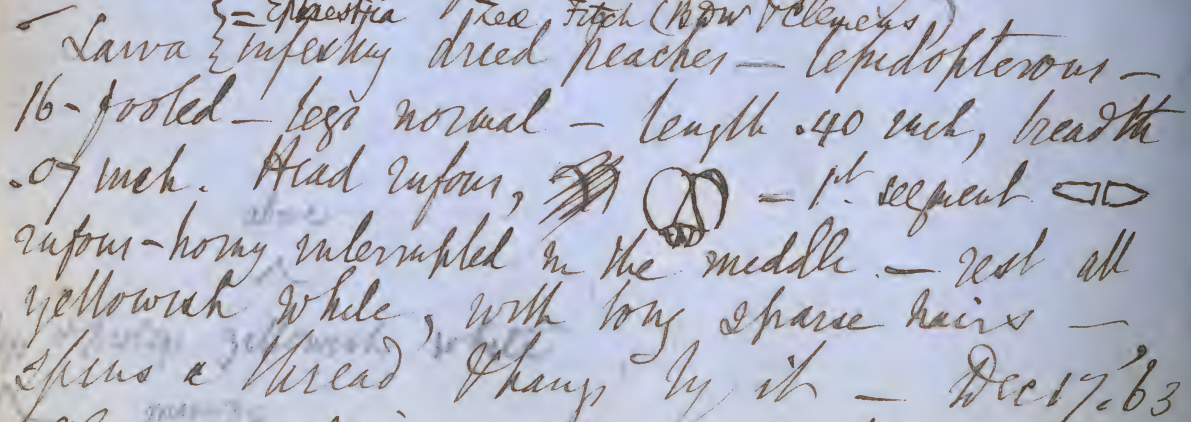 = Ephestia Zeae Fitch (BDW & Clemens)
Larva infesting dried peaches — lepidopterous —
16-footed — legs normal — length .40 inch, breadth
.07 inch. Head rufous, = 1st. segment
rufous-horny interrupted in the middle. — rest all
yellowish white, with long sparse hairs —
spins a thread & hangs by it — Dec 17, '63